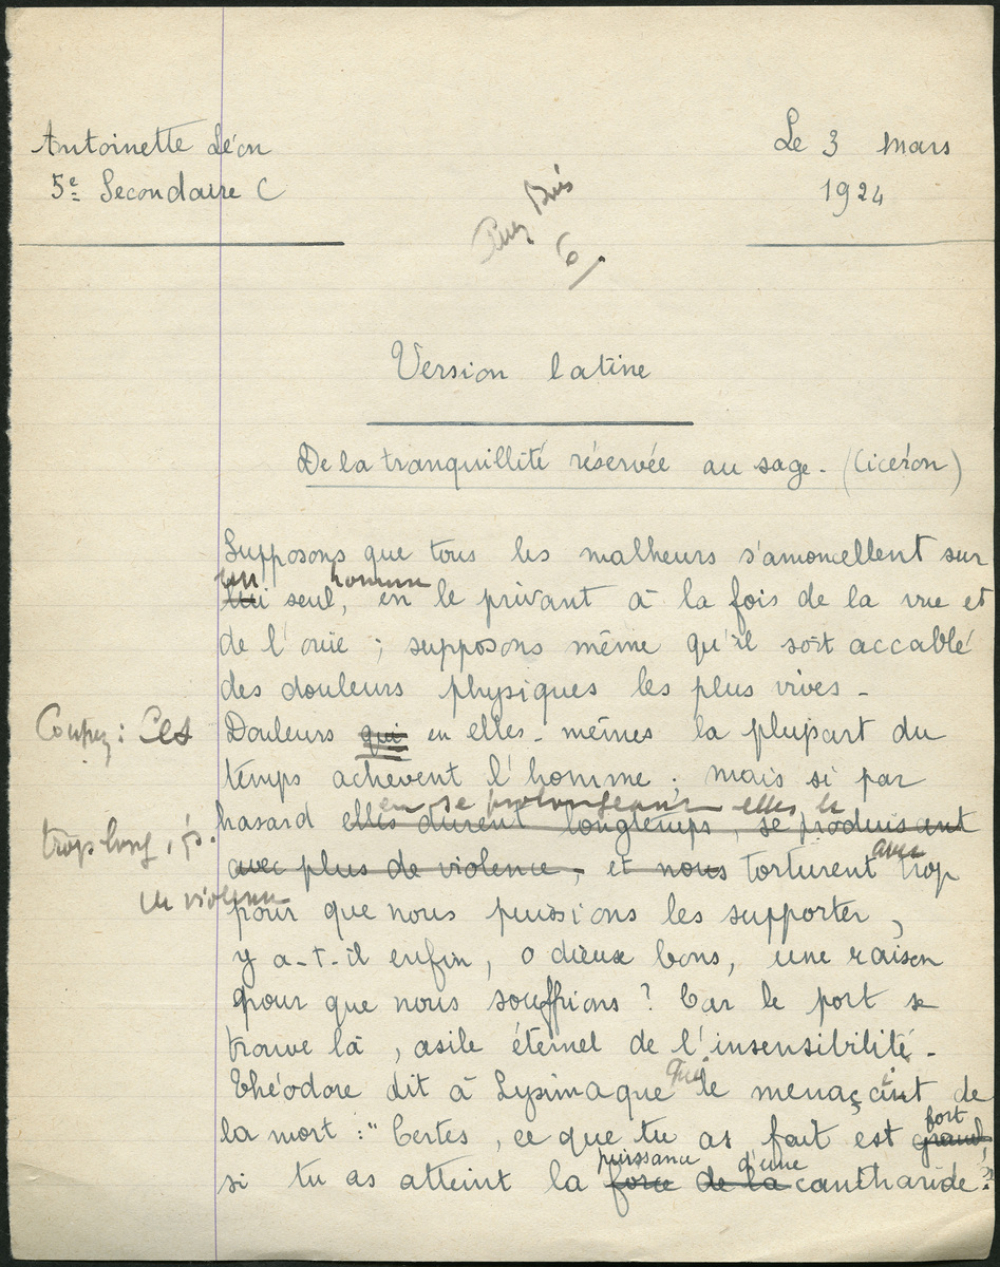 Antoinette Léon
Le 3 mars
5e Secondaire C
1924
6
Version latine
De la tranquillité réservée au sage. (Cicéron)
Supposons que tous les malheurs s'amoncellent sur
un homme
lui seul, en le privant à la fois de la vue et
de l'ouïe ; supposons même qu'il soit accablé
des douleurs physiques les plus vives.
Coupez : Ces
Douleurs qui en elles-mêmes la plupart du
temps achèvent l'homme ; mais si par
en se prolongeant elles le
hasard elles durent longtemps, se produisant
trop long, 
avec
avec plus de violence, et nous torturent trop
violence
pour que nous puissions les supporter,
y a-t-il enfin, o dieux bons, une raison
pour que nous souffrions ? Car le port se
trouve là, asile éternel de l'insensibilité.
qui
Théodore dit à Lysimaque le menaçait de
fort
la mort : "Certes, ce que tu as fait est grand,
puissance d'une
si tu as atteint la force de la cantharide."